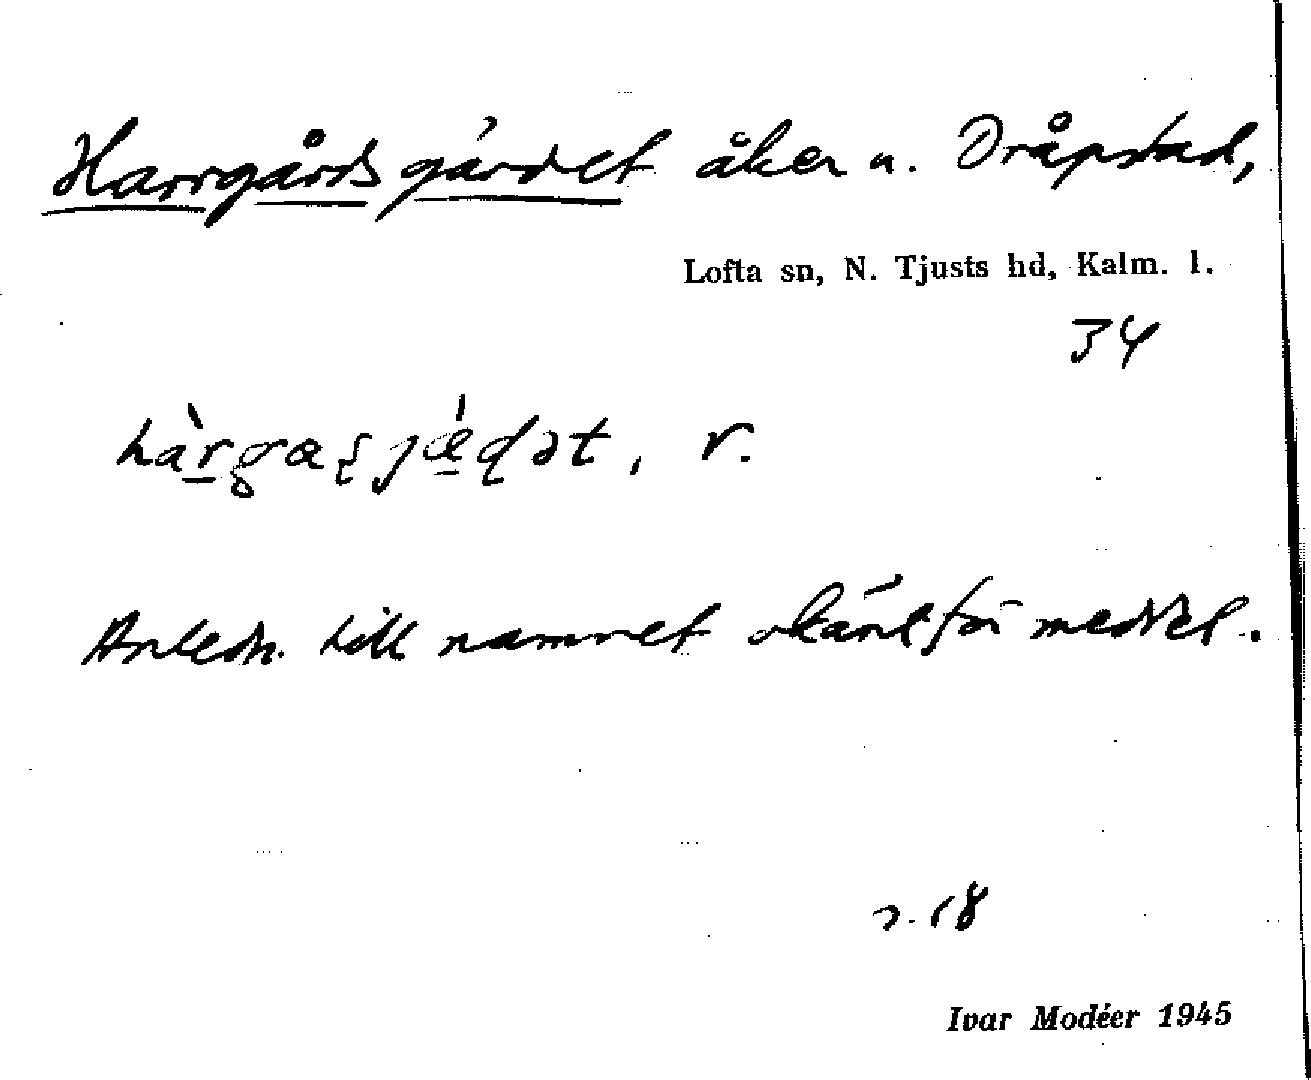 Harrgårdsgärdet åker u. Dråpstad,
Lofta sn, N. Tjusts hd, Kalm. l.
34
hàrgaʂjǽɖət, r.
Anledn. till namnet okänt för meddel.
s. 18
Ivar Modéer 1945